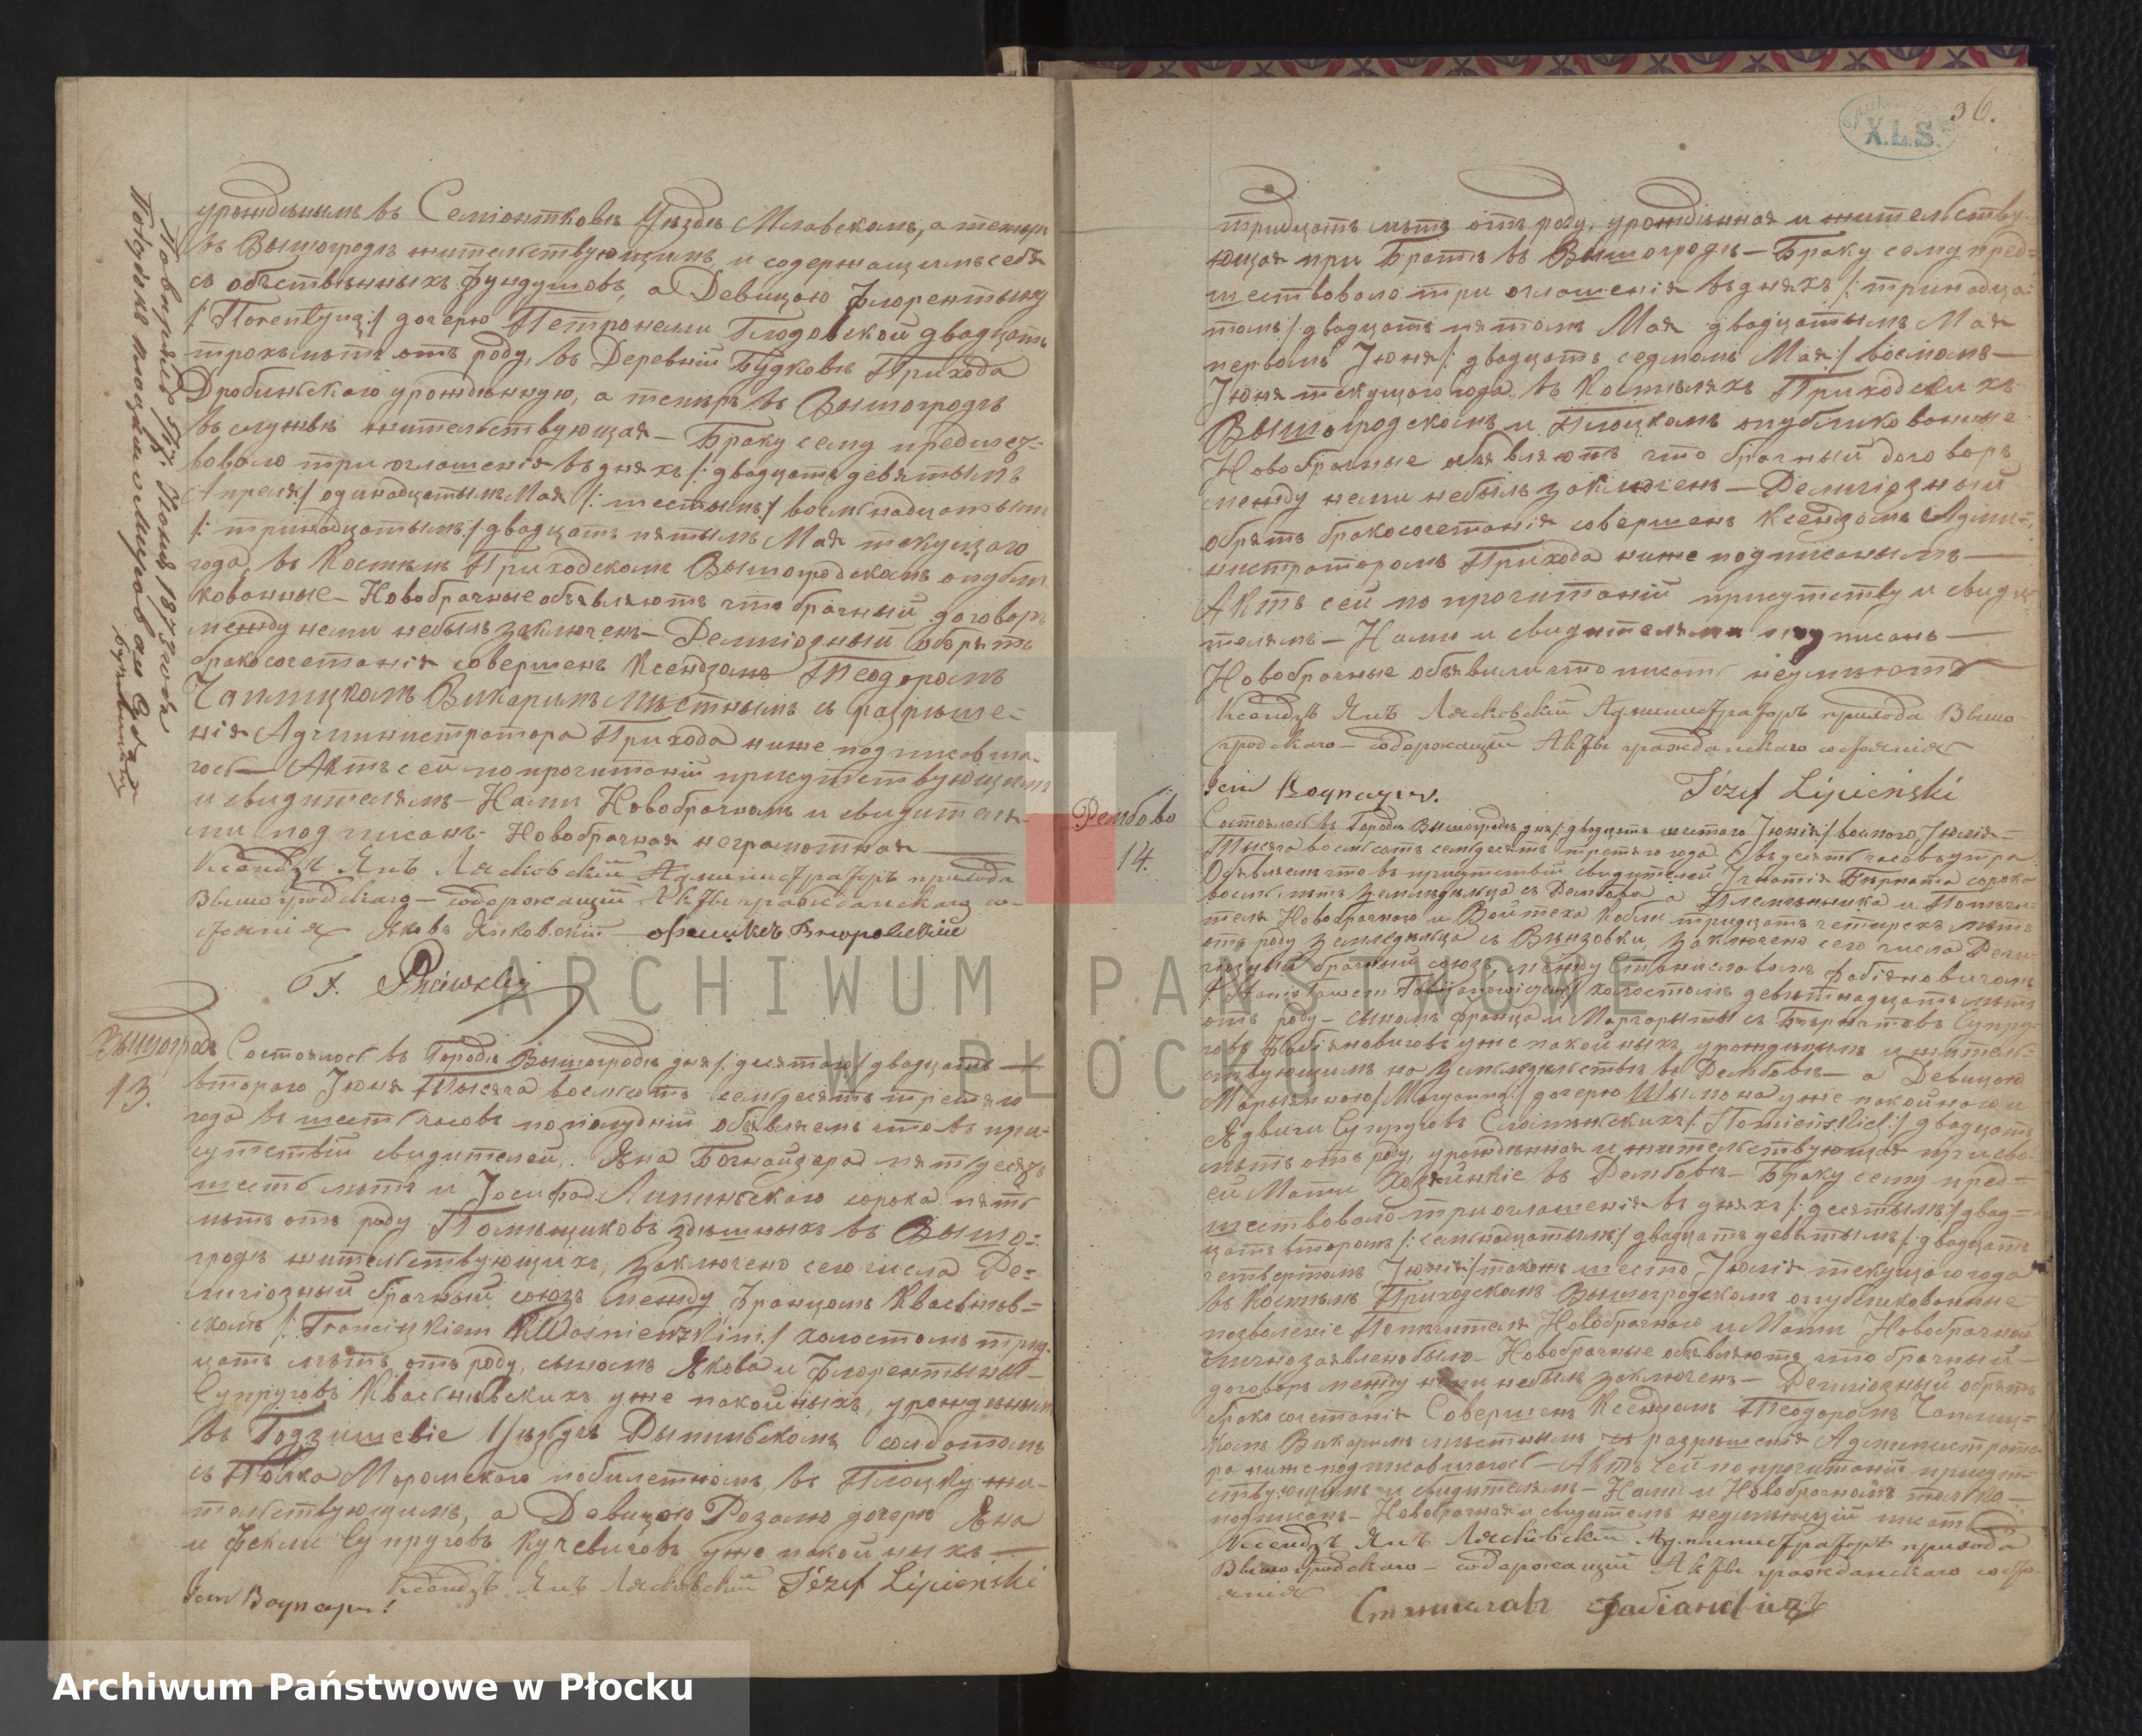 урожденымъ въ Семіонтковѣ Уѣздѣ Млавскомъ, а теперь
въ Вышогродѣ жительствующимъ и содержащимъ себя
съ общественныхъ фундушовъ, а Девицою Флорентыну
/:Florentyną:/ дочерю Петронели Глодовской двадцать
трохъ лѣтъ отъ роду, въ Деревнѣ Будковѣ Прихода
Дробинского урожденную, а теперь въ Вышогродѣ
въ службѣ жительствующая — Браку сему предшес-
вовало три оглашенія въ дняхъ /:двадцать девятымъ
Апреля:/ одинадцатымъ Мая /:шестымъ:/ восьмнадцатым
/:тринадцатымъ:/ двадцать пятымъ Мая текущаго
года, въ Костелѣ Приходскомъ Вышогродскомъ опубли
кованные — Новобрачные объявляютъ что брачный договоръ
между неми небылъ заключенъ — Религіозный обрятъ
бракосочетанія совершенъ Ксендзомъ Теодоромъ
Чаплицкомъ Викаримъ мѣстнымъ съ разрѣше-
нія Администратора Прихода ниже подписавша-
гось — Актъ сей по прочитаній присутствующимъ
и свидителямъ — Нами Новобрачнымъ и свидителя-
ми подписанъ — Новобрачная неграмотная
Ксендзъ Янъ Лясковскій Администраторъ прихода
Вышогродскаго — содержащій Акты гражданскаго со-
стоянія Яковъ Янковскій
Повѣрялъ 5/17. Іюня 1873 года
Вышоградъ
13.
Состоялось въ Городѣ Вышогродѣ дня /:десятого:/ двадцать
второго Іюня Тысяча восемьсотъ семьдесятъ третяго
года въ шесть часовъ пополудній объявляемъ что въ при-
сутствій свидителей Яна Богнайзера пятьдесятъ
шесть лѣтъ и Іосифа Липинского сорока пять
лѣтъ отъ роду Помѣщиковъ здѣшныхъ въ Вышо-
гродѣ жительствующихъ, заключено сего числа Ре-
лигіозный брачный союзъ между Францомъ Квасьнѣв-
скомъ /:Franciszkiem KWaśniewskim:/ холостомъ трид
цать лѣтъ отъ роду, сыномъ Якова и Флорентыны
Супруговъ Квасьнѣвскихъ уже покойныхъ, урожденым
въ Годзишевіе Уѣздѣ Рыпинскомъ солдатомъ
съ Полка Моромского побилетномъ, въ Плоцку жи-
тельствующимъ, а Девицою Розалю дочерю Яна
и Феклы Супруговъ Кучевичовъ уже покойныхъ
Ксендзъ Янъ Лясковскій Józef Lipieński
36.
X.L.S.
тридцать лѣтъ отъ роду, урожденная и жительству-
ющая при Братѣ въ Вышогродѣ — Браку сему пред-
шествовало три оглашенія въ дняхъ /:тринадца-
томъ:/ двадцать пятомъ Мая двадцатымъ Мая
первомъ Іюня /:двадцать седмомъ Мая:/ восмомъ
Іюня текущого года въ Костеляхъ Приходскихъ
Вышогродскомъ и Плоцкомъ опубликованные
Новобрачные объявляютъ что брачный договоръ
между неми небылъ заключенъ — Религіозный
обрятъ бракосочетанія совершенъ Ксендзомъ Адми-
нистраторомъ Прихода ниже подписанымъ —
Актъ сей по прочитаній присутству и свиди
телямъ — Нами и свидителями подписанъ —
Новобрачные объявили что писать неумѣютъ
Ксендзъ Янъ Лясковскій Администраторъ прихода Вышо-
гродскаго — содержащій Акты гражданскаго состоянія
Józef Lipieński
Рембово
14.
Состоялось въ Городѣ Вышогродѣ дня /:двадцать шестого Іюня:/ восмого Іюля
Тысяча восемьсотъ семьдесятъ третяго года въ десять часовъ утра
Объявляемъ что въ присутствій свидителей Игнатія Берната сорока
восемь лѣтъ земледѣльца съ Рембова а Племянника и Попечи-
теля Новобрачного и Войтеха Кобли тридцать четырехъ лѣтъ
отъ роду земледѣльца съ заключено сего числа Рели-
гіозный брачный союзъ, между Станиславомъ Фабіяновичомъ
/:Stanisławem Fabijanowiczem:/ холостомъ девятнадцать лѣтъ
отъ роду — сыномъ Франца и Маргорыты съ Бернатовъ Супру-
говъ Фабіяновичовъ уже покойныхъ, урожденымъ и житель-
ствующимъ на земледѣльствѣ въ Рембовѣ — а Девицою
Марыанною /:Maryanną:/ дочерю Шымона уже покойного и
Ядвиги Супруговъ двадцать
лѣтъ отъ роду, урожденная и жительствующая при сво-
ей Матки Хозяйкіе въ Рембовѣ — Браку сему пред-
шествовало три оглашенія въ дняхъ /:десятымъ:/ двад-
цать второмъ /:семнадцатымъ:/ двадцать девятымъ /:двадцать
четвертомъ Іюня:/ такожъ шесто Іюля текущого года
въ Костелѣ Приходскомъ Вышогродскомъ опубликованные
позволеніе Попечителя Новобрачного и Матки Новобрачной
лично заявлено было — Новобрачные объявляютъ что брачный
договоръ между неми небылъ заключенъ — Религіозный обрятъ
бракосочетанія Совершенъ Ксендзомъ Теодоромъ Чаплиц-
комъ Викаримъ мѣстнымъ съ разрѣшенія Администрато-
ра ниже подписавшагось — Актъ сей по прочитаній присут-
ствующимъ и свидителямъ — Нами и Новобрачнымъ только
подписанъ — Новобрачная и свидители неумѣющій писать
Ксендзъ Янъ Лясковскій Администраторъ прихода
Вышогродскаго — содержащій Акты гражданскаго состо-
янія
ARCHIWUM PAŃSTWOWE
W PŁOCKU
Archiwum Państwowe w Płocku